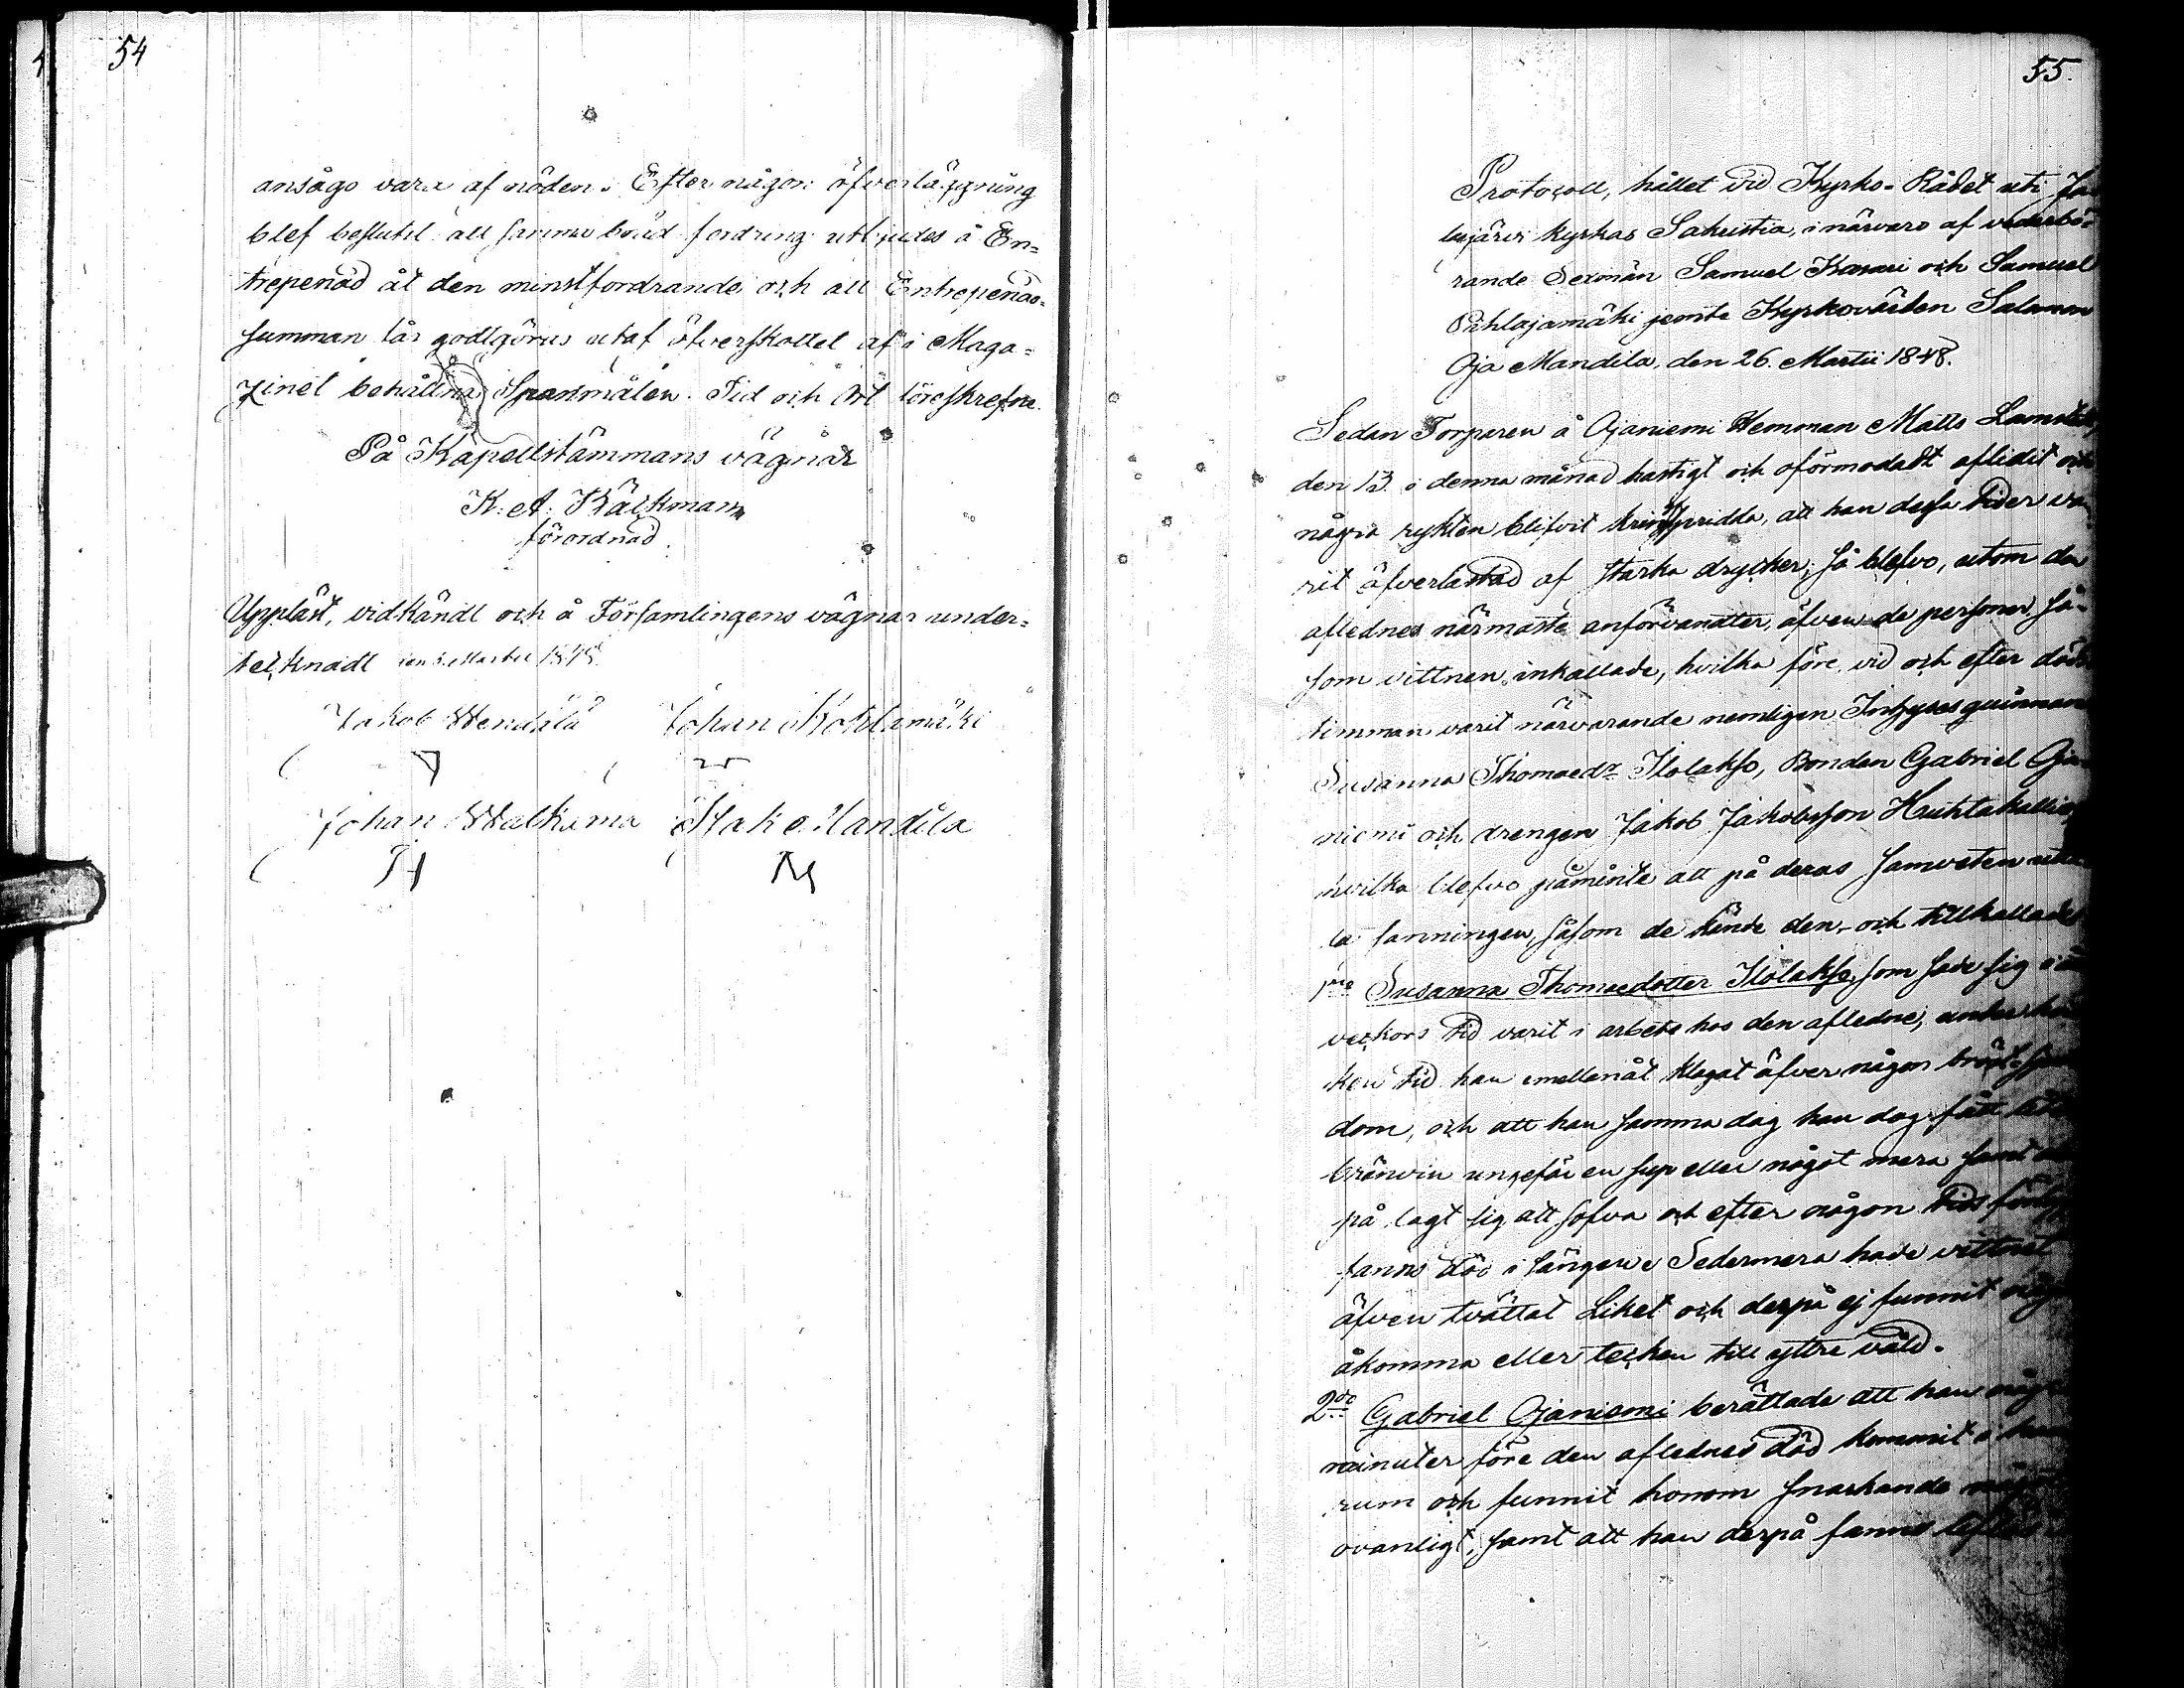 54
ansågo vara af nöden. Efter någon öfverläggning
blef beslutit att samma fordring utbjudes å En=
trepenad åt den minstfordrande och att Entrepenad=
summan får godtgöras utaf öfverskottet af i Maga=
zinet behållna Spanmålen. Tid och Ort föreskrefne.
På Kapellstämmans vägnar
K. A. Bäckman
förordnad.
Uppläst, vidkändt och å Församlingens vägnar under=
tecknadt den Martii 1848.
Jakob Johan
Johan Walkama Isak Mandila
55.
Protocoll, hållet vid Kyrko-Rådet uti
järvi kyrkas Sakristia, i närvaro af vederbö=
rande Sexmän Samuel Kasari och Samuel
Pihlajamäki jemte Kyrkovärden Salomon
Oja Mandila, den 26. Martii 1848.
Sedan Torparen å Ojaniemi Hemman Matts
den 13. i denna månad hastigt och oförmodadt aflidit och
några rykten blifvit kringspridda, att han dessa tider va
rit öfverlastad af starka drycker, så blefvo, utom den
aflednes närmaste anförvanter, äfven de personer så=
som vittnen inkallade, hvilka före, vid och efter döds
timman varit närvarande nemligen Inhysesqvinnan
Susanna Thomaedr Ilolakso, Bonden Gabriel Oja
niemi och drengen Jakob Jakobsson Huhtakallio
hvilka blefvo påminte att på deras samveten
la sanningen, såsom de kände den, och tillkallades
1mo Susanna Thomaedotter Ilolakso, som sade sig
veckors tid varit i arbete hos den aflidne, under
ken tid han emellanåt klagat öfver någon bröst
dom, och att han samma dag han dog fått
bränvin ungefär en sup eller något mera samt
på lagt sig att sofva och efter någon tids
fanns död i sängen. Sedermera hade vittnet
äfven tvättat Liket och derpå ej funnit
åkomma eller tecken till yttre våld.
2do Gabriel Ojaniemi berättade att han
minuter före den aflednes död kommit i
rum och funnit honom snarkande
ovanligt, samt att han derpå fanns